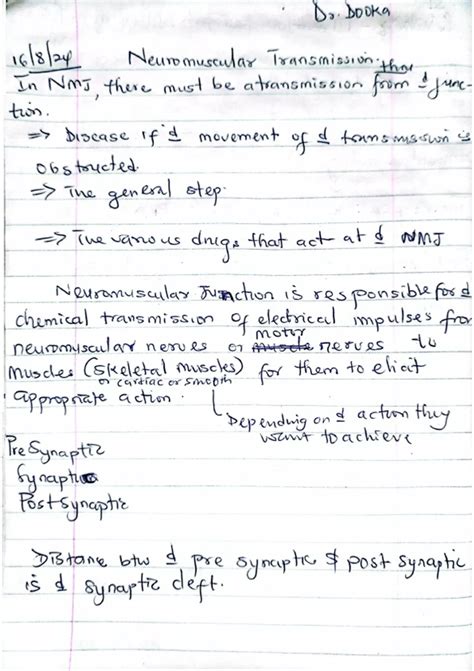 Dr. DOOKA
16/8/24 Neuromuscular Transmission.
In NMJ, there must be a transmission from thru d junc-
tion.
⇒ Disease if d movement of d transmission is
obstructed.
⇒ The general step.
⇒ The various drugs that act at d NMJ
Neuromuscular Junction is responsible for d
chemical transmission of electrical impulses from
neuromuscular nerves or motor nerves to
muscles (skeletal muscles) for them to elicit
or cardiac or smooth
appropriate action.
Depending on d action they
want to achieve
Pre Synaptic
Synaptic
Post synaptic
Distane btw d pre synaptic & post synaptic
is d synaptic cleft.